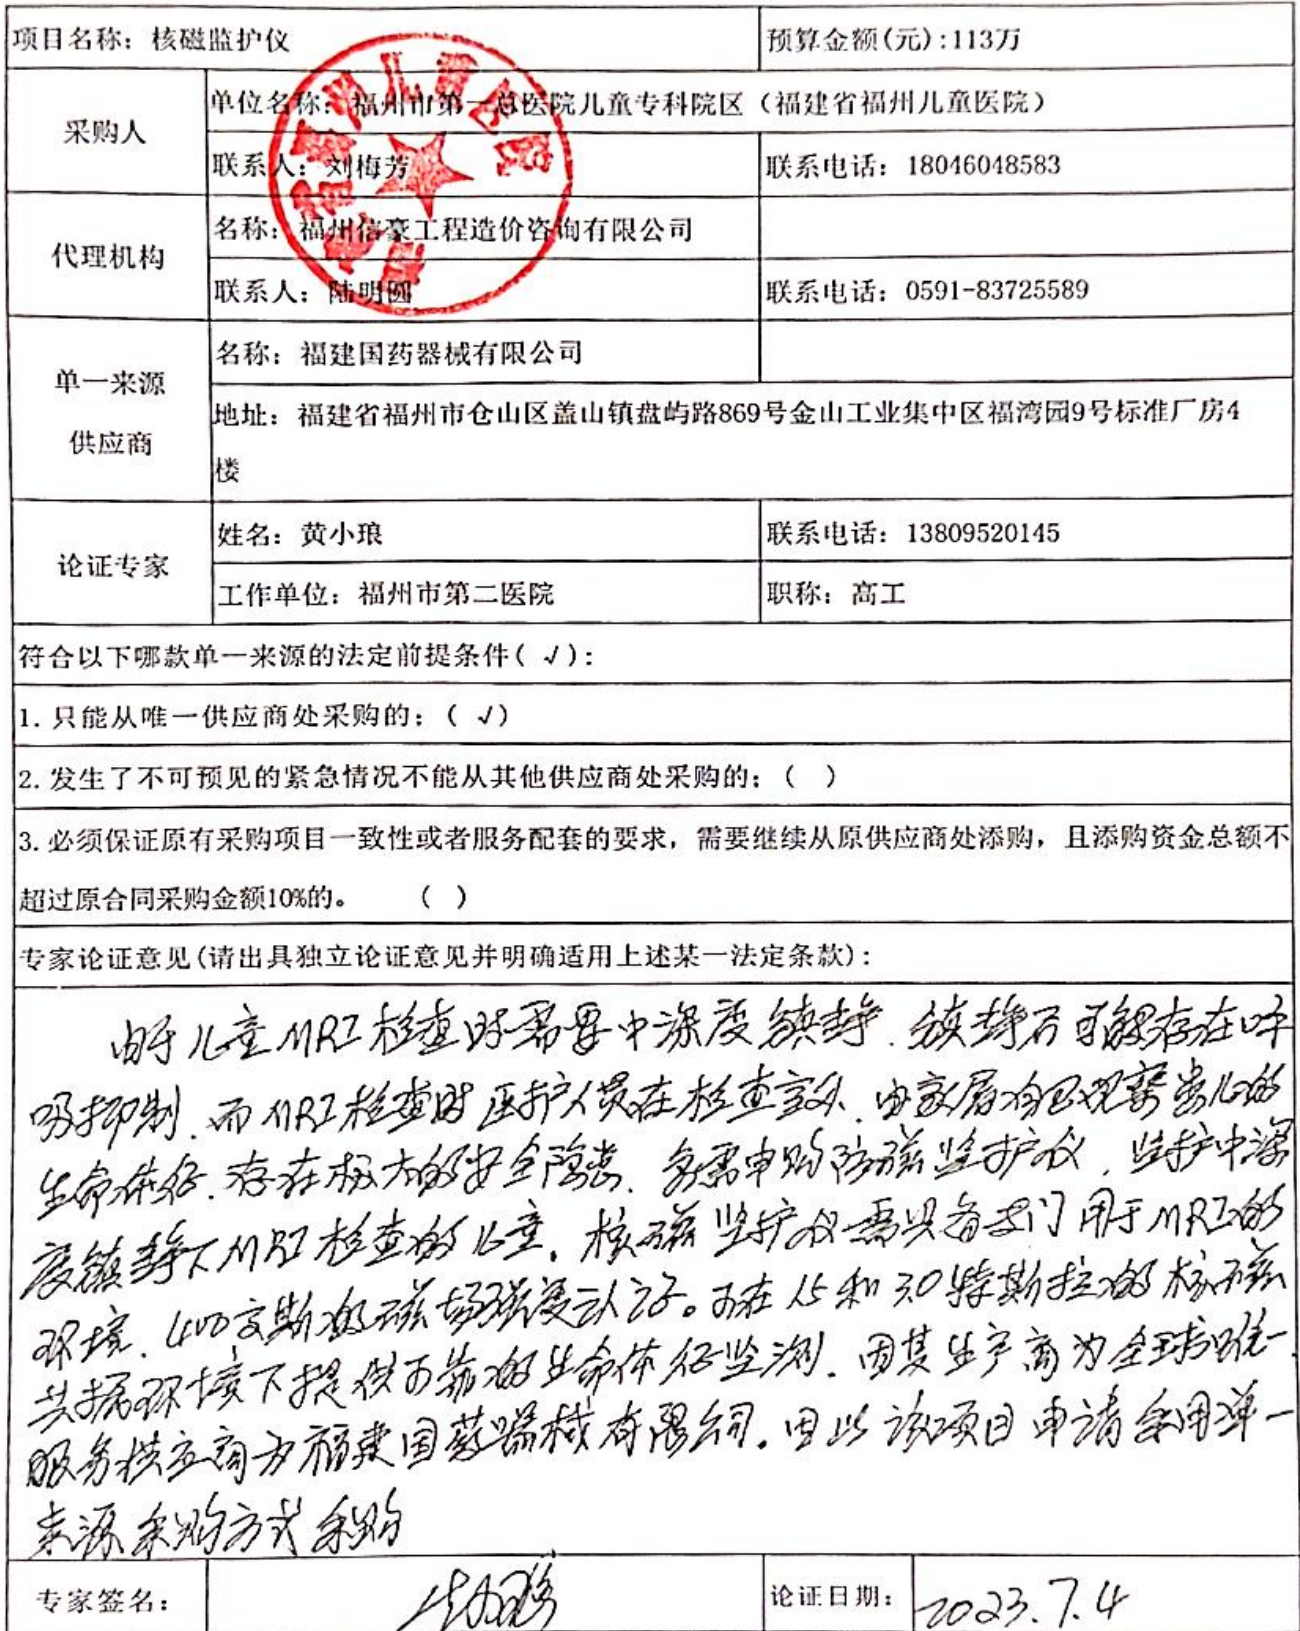 项目名称：核磁监护仪 预算金额(元):113万
采购人
单位名称：福州市第一总医院儿童专科院区（福建省福州儿童医院）
联系人：刘梅芳 联系电话：18046048583
代理机构
名称：福州信豪工程造价咨询有限公司
联系人：陆明圆 联系电话：0591-83725589
单一来源
供应商
名称：福建国药器械有限公司
地址：福建省福州市仓山区盖山镇盘屿路869号金山工业集中区福湾园9号标准厂房4
楼
论证专家
姓名：黄小琅 联系电话：13809520145
工作单位：福州市第二医院 职称：高工
符合以下哪款单一来源的法定前提条件( √ )：
1.只能从唯一供应商处采购的；( √ )
2.发生了不可预见的紧急情况不能从其他供应商处采购的；( )
3.必须保证原有采购项目一致性或者服务配套的要求，需要继续从原供应商处添购，且添购资金总额不
超过原合同采购金额10%的。 ( )
专家论证意见(请出具独立论证意见并明确适用上述某一法定条款)：
由于儿童MRI检查时需要中深度镇静.镇静后可能存在呼
吸抑制.而MRI检查时医护人员在检查室外.由家属自己观察患儿的
生命体征.存在极大的安全隐患.急需申购防磁监护仪.监护中深
度镇静下MRI检查的儿童.核磁监护仪需具备专门用于MRI的
环境.400高斯的磁场强度认证。可在1.5和3.0特斯拉的核磁
共振环境下提供可靠的生命体征监测.因其生产商为全球唯一.
服务供应商为福建国药器械有限公司.因此该项目申请采用单一
来源采购方式采购
专家签名： 论证日期：2023.7.4